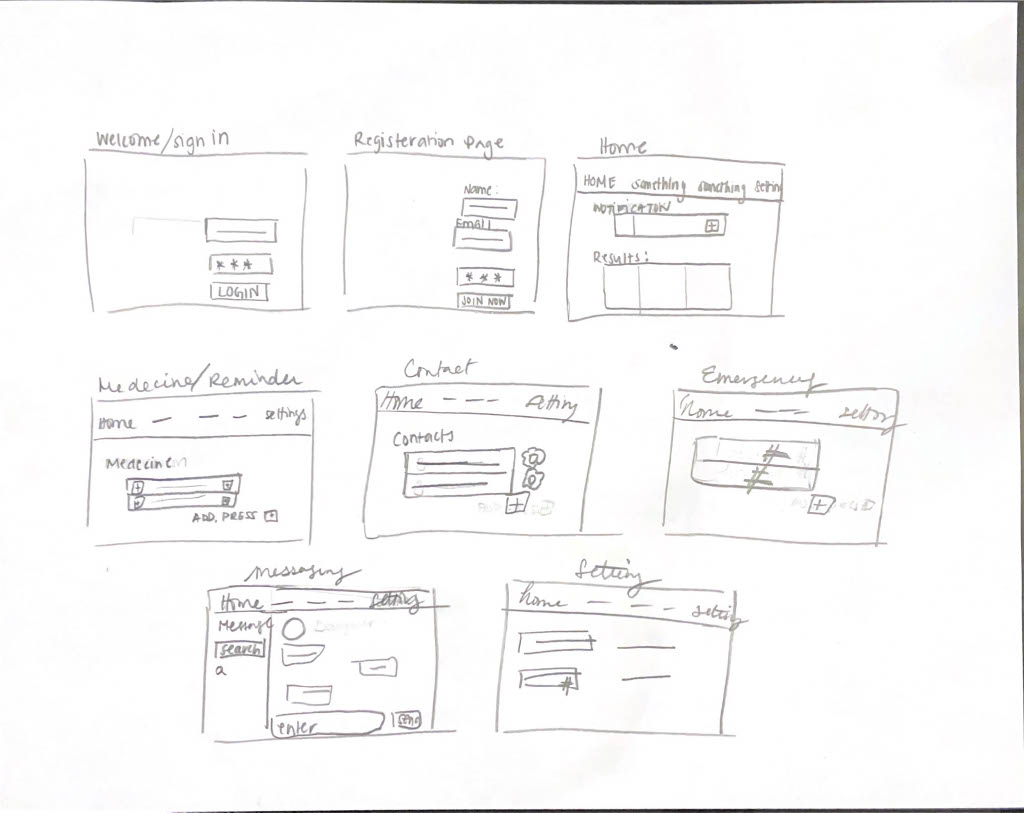 Welcome/sign in
LOGIN
Registeration Page
Name:
EMAIL
JOIN NOW
Home
HOME something something setting
NOTIFICATON
Results:
Medecine/Reminder
Home settings
Medecine
ADD, PRESS +
Contact
Home setting
Contacts
+
Emergency
home
#
#
+
Messaging
Home setting
Message
search
a
enter
send
Setting
home setting
#